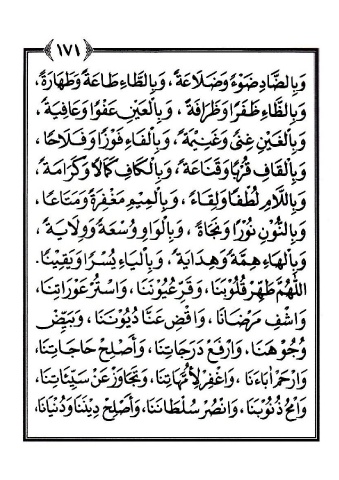 ١٧١
وَبِالضَّادِ ضَوْءً وَضَلَاعَةً، وَبِالطَّاءِ طَاعَةً وَطَهَارَةً،
وَبِالظَّاءِ ظَفَرًا وَظَرَافَةً، وَبِالْعَيْنِ عَفْوًا وَعَافِيَةً،
وَبِالْغَيْنِ غِنًى وَغَنِيْمَةً، وَبِالْفَاءِ فَوْزًا وَفَلَاحًا،
وَبِالْقَافِ قُرْبًا وَقَنَاعَةً، وَبِالْكَافِ كَمَالًا وَكَرَامَةً،
وَبِاللَّامِ لُطْفًا وَلِقَاءً، وَبِالْمِيْمِ مَغْفِرَةً وَمَتَاعًا،
وَبِالنُّوْنِ نُوْرًا وَنَجَاةً، وَبِالْوَاوِ وُسْعَةً وَوِلَايَةً،
وَبِالْهَاءِ هِمَّةً وَهِدَايَةً، وَبِالْيَاءِ يُسْرًا وَيَقِيْنًا.
اللَّهُمَّ طَهِّرْ قُلُوْبَنَا، وَقَرِّ عُيُوْنَنَا، وَاسْتُرْ عَوْرَاتِنَا،
وَاشْفِ مَرْضَانَا، وَاقْضِ عَنَّا دُيُوْنَنَا، وَبَيِّضْ
وُجُوْهَنَا، وَارْفَعْ دَرَجَاتِنَا، وَأَصْلِحْ حَاجَاتِنَا،
وَارْحَمْ اٰبَاءَنَا، وَاغْفِرْ لِأُمَّهَاتِنَا، وَتَجَاوَزْ عَنْ سَيِّئَاتِنَا،
وَامْحُ ذُنُوْبَنَا، وَانْصُرْ سُلْطَانَنَا، وَأَصْلِحْ دِيْنَنَا وَدُنْيَانَا،